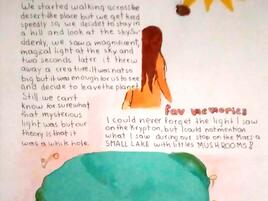 We started walking across the
desert like place but we get tired
speedly so we decided to stay in
a hill and look at the sky. Su
ddenly, we saw a magnificent,
magical light at the sky and
two seconds later it threw
away a creature. It was not so
big but it was enough for us to see
and decide to leave the planet.
Still we can't
know for sure what
that mysterious
light was but our
theory is that it
was a whik hole.
fav memories
I could never forget the light I saw
on the Krypton, but I could not mention
what I saw during our stop on the Mars: a
SMALL LAKE with little MUSHROOMS!